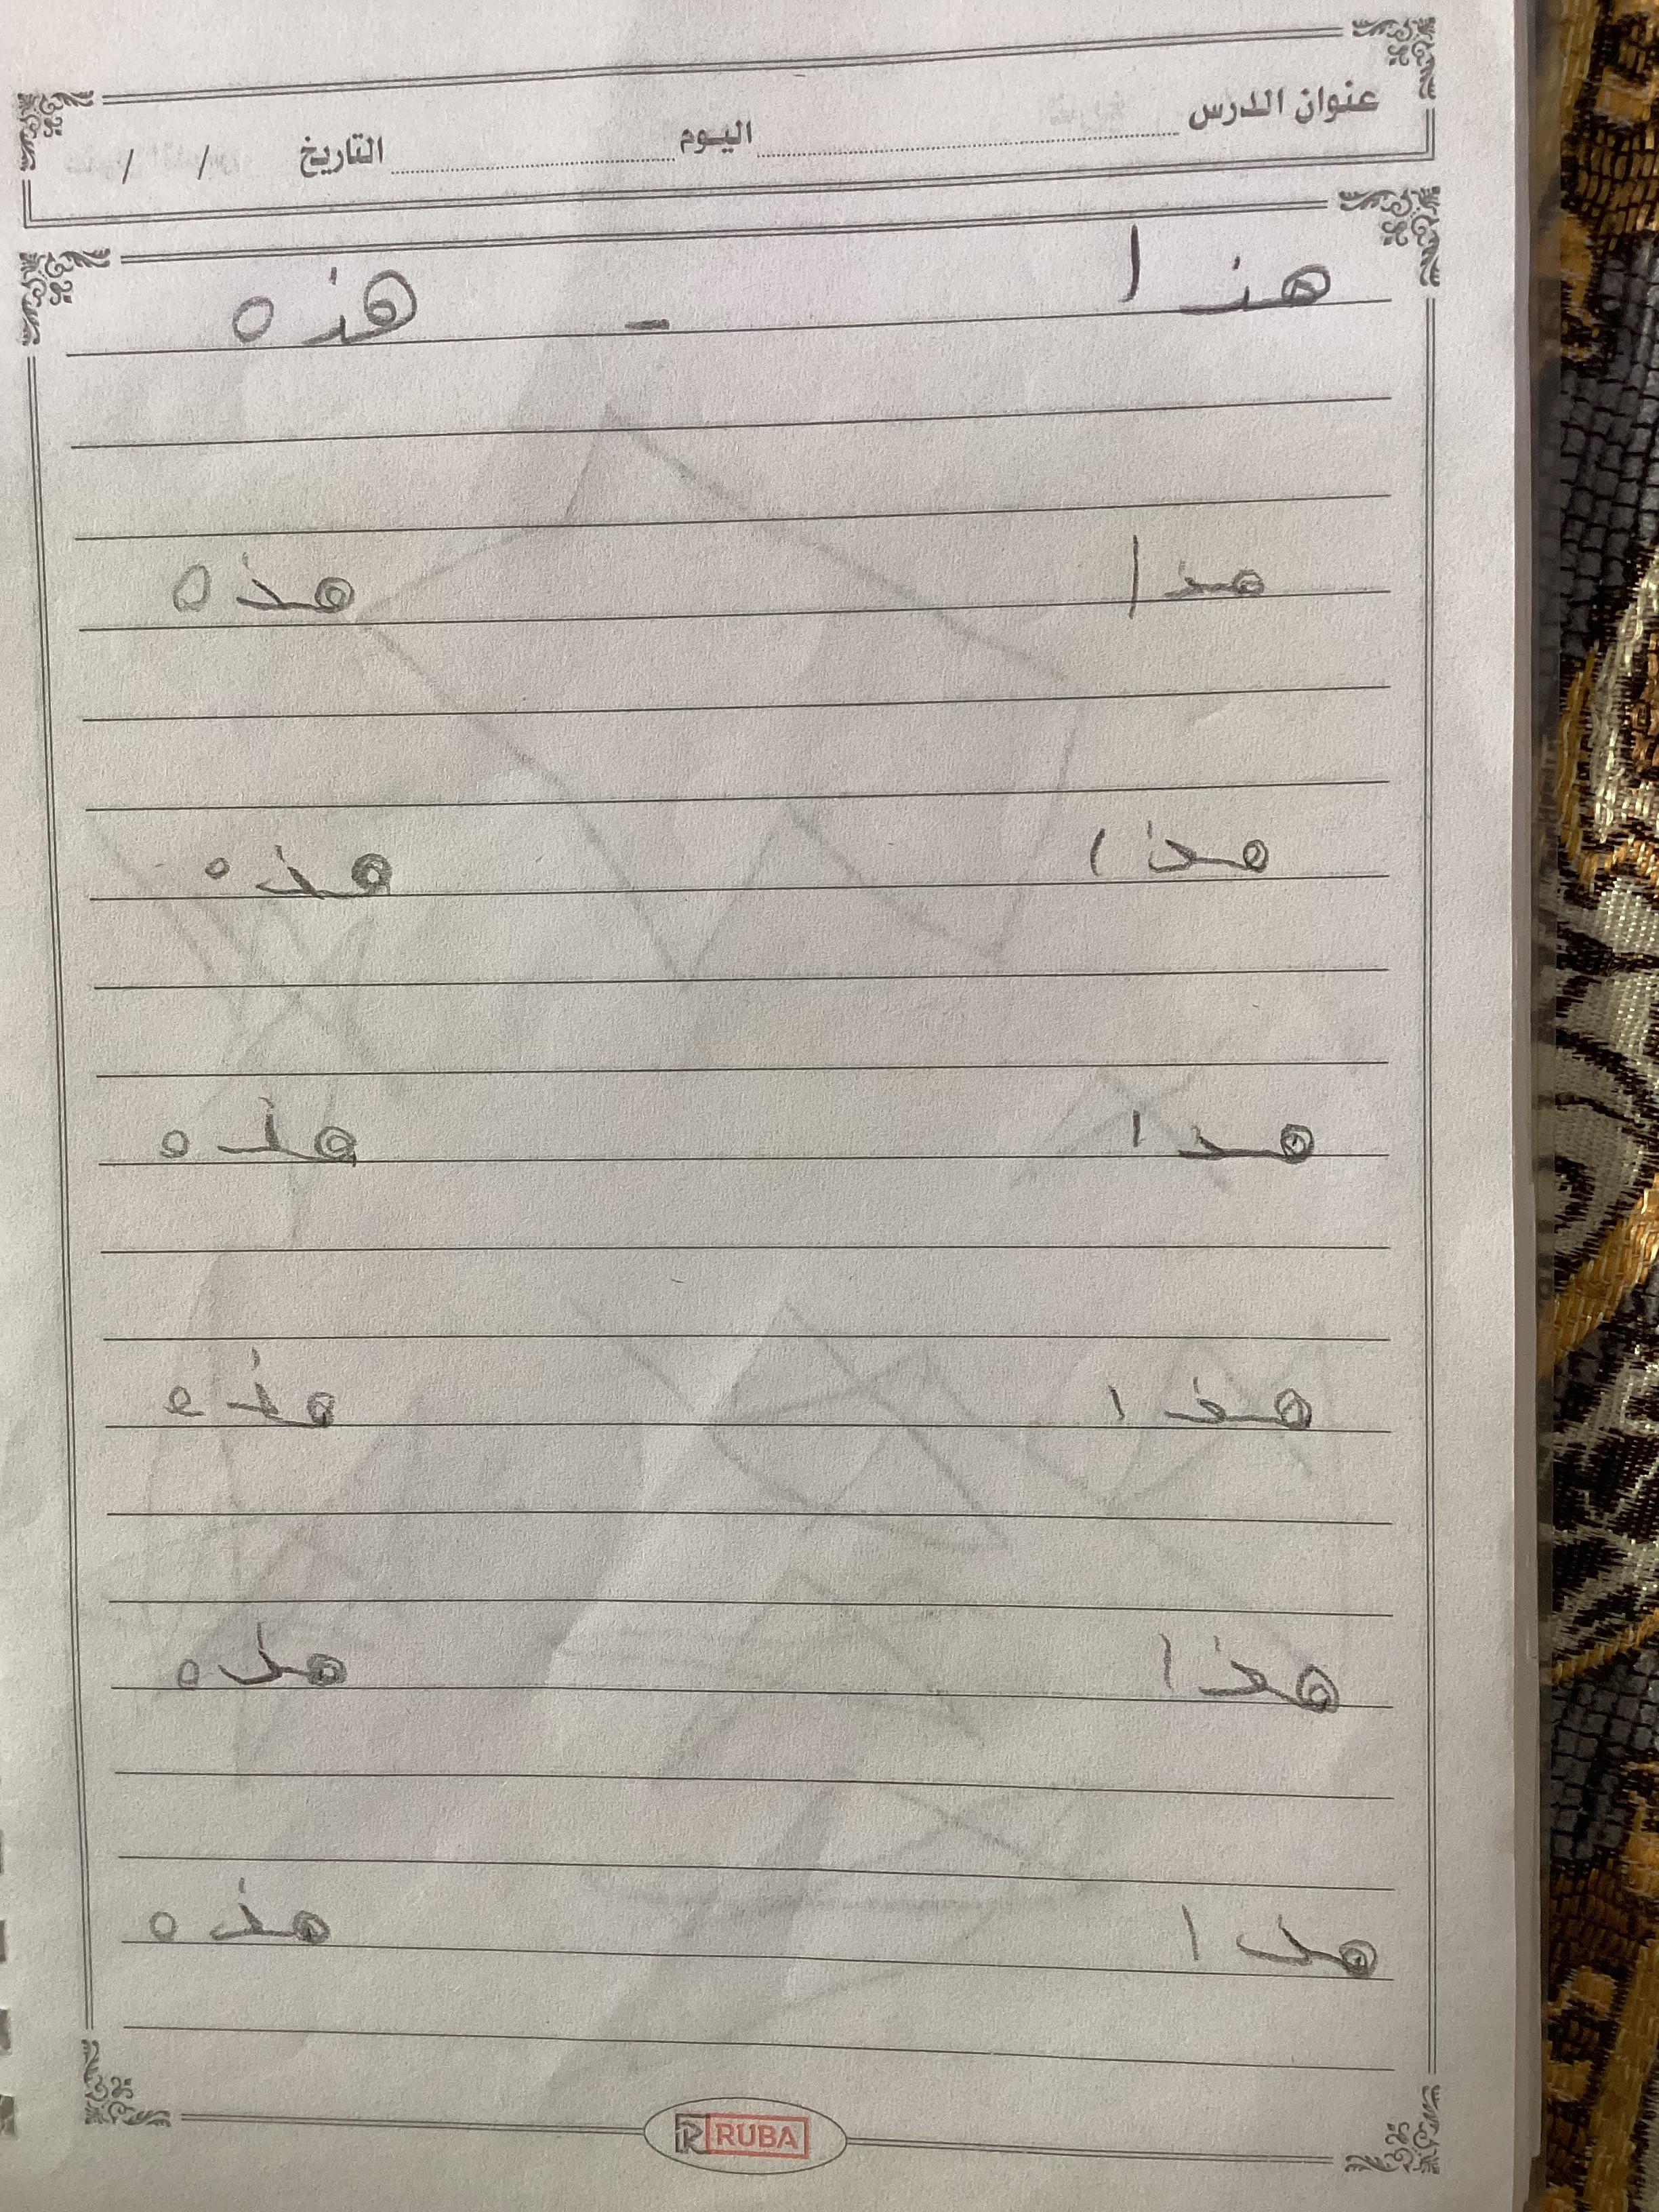 عنوان الدرس اليوم التاريخ / /
هذا - هذه
هذا هذه
هذا هذه
هدا هذه
هذا هذه
هذا هذه
هذا هذه
R RUBA